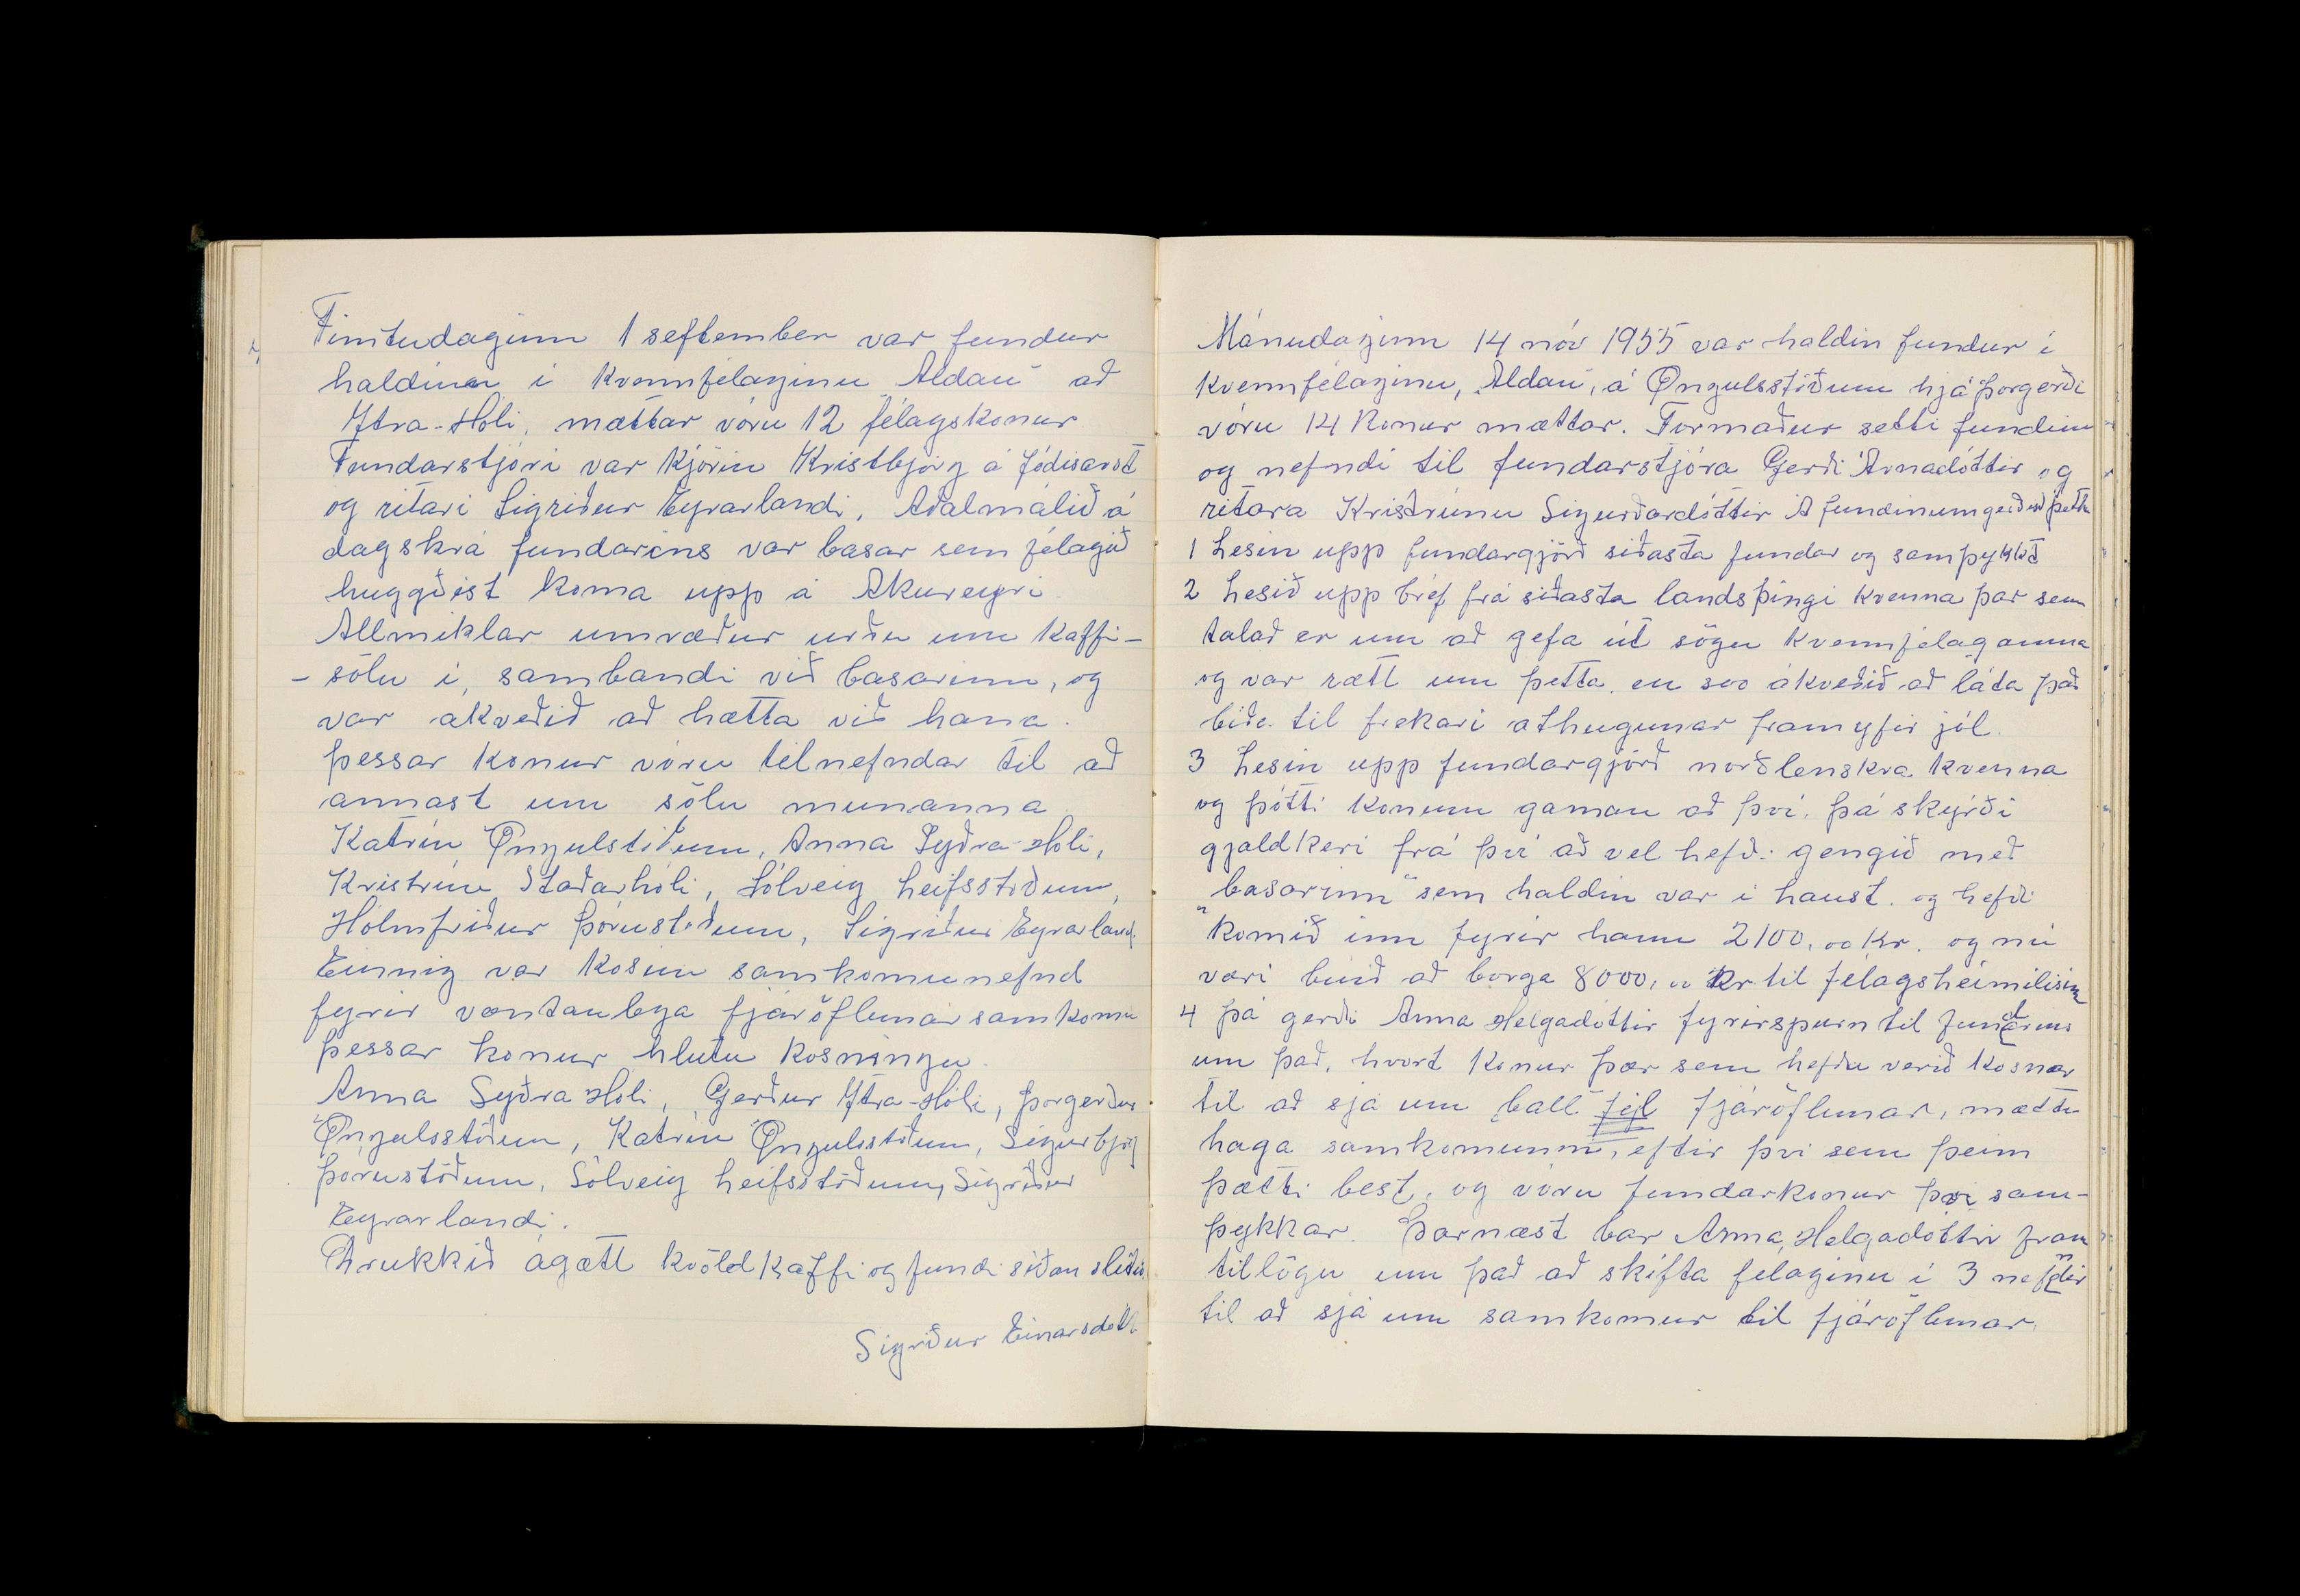 Fimtudaginn 1 seftember var fundur
haldinn í Kvennfélaginu "Aldan" að
Ytra-Hóli, mættar vóru 12 félagskonur
Fundarstjóri var kjörin Kristbjörg á Jódísarst
og ritari Sigríður Eyrarlandi, Aðalmálið á
dagskrá fundarins var basar sem félagið
huggðist koma upp á Akureyri
Allmiklar umræður urðu um kaffi-
- sölu í, sambandi við basarinn, og
var ákveðið að hætta við hana.
þessar konur vóru tilnefndar til að
annast um sölu munanna
Katrín Öngulstöðum, Anna Syðra-Hóli,
Kristrún Staðarhóli, Sólveig Leifsstöðum,
Hólmfríður Þórustöðum, Sigríður Eyrarlandi
Einnig var kosin samkomunefnd
fyrir væntanlega fjáröflunarsamkomu
þessar konur hlutu kosningu.
Anna Syðra Hóli, Gerður Ytra-Hóli, Þorgerður
Öngulsstöðum, Katrín Öngulsstöðum, Sigurbjörg
Þórustöðum, Sólveig Leifsstöðum, Sigríður
Eyrarlandi.
Drukkið ágætt kvöldkaffi og fundi síðan slitið
Sigríður Einarsdótt
Mánudaginn 14 nóv 1955 var haldin fundur í
kvennfélaginu, "Aldan", á Öngulsstöðum hjá Þorgerði
vóru 14 konur mættar. Formaður setti fundinn
og nefndi til fundarstjóra Gerði Árnadóttir og
ritara Kristrúnu Sigurðardóttir Á fundinum gerðist þetta
1 Lesin upp fundargjörð síðasta fundar og samþykkt
2 Lesið upp bréf frá síðasta landsþingi kvenna þar sem
talað er um að gefa út sögu kvennfélaganna
og var rætt um þetta. en svo ákveðið að láta það
bíða til frekari athugunar framyfir jól.
3 Lesin upp fundargjörð norðlenskra kvenna
og þótti konum gaman að því. þá skýrði
gjaldkeri frá því að vel hefði gengið með
"basarinn" sem haldin var í haust. og hefði
komið inn fyrir hann 2100,oo kr. og nú
væri búið að borga 8000,oo kr til félagsheimilisins
4 þá gerði Anna Helgadóttir fyrirspurn til fundarins
um það, hvort konur þær sem hefðu verið kosnar
til að sjá um "ball" til fjáröflunar, mættu
haga samkomunni, eftir því sem þeim
þætti best, og vóru fundarkonur því sam-
þykkar. Þarnæst bar Anna Helgadóttir fram
tillögu um það að skifta félaginu í 3 nefndir
til að sjá um samkomur til fjáröflunar.